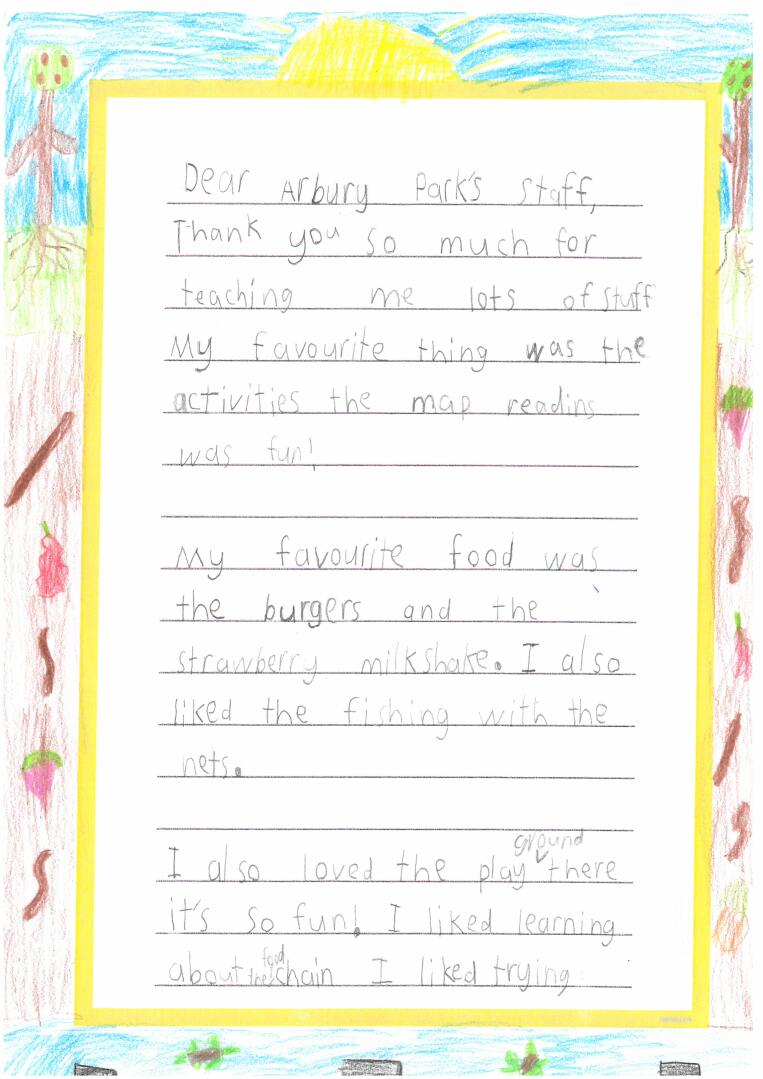 Dear Arbury Park's Staff,
Thank you so much for
teaching me lots of stuff
My favourite thing was the
activities the map reading
was fun!
My favourite food was
the burgers and the
strawberry milkshake. I also
liked the fishing with the
nets.
I also loved the play ground there
it's so fun! I liked learning
about the food chain I liked trying